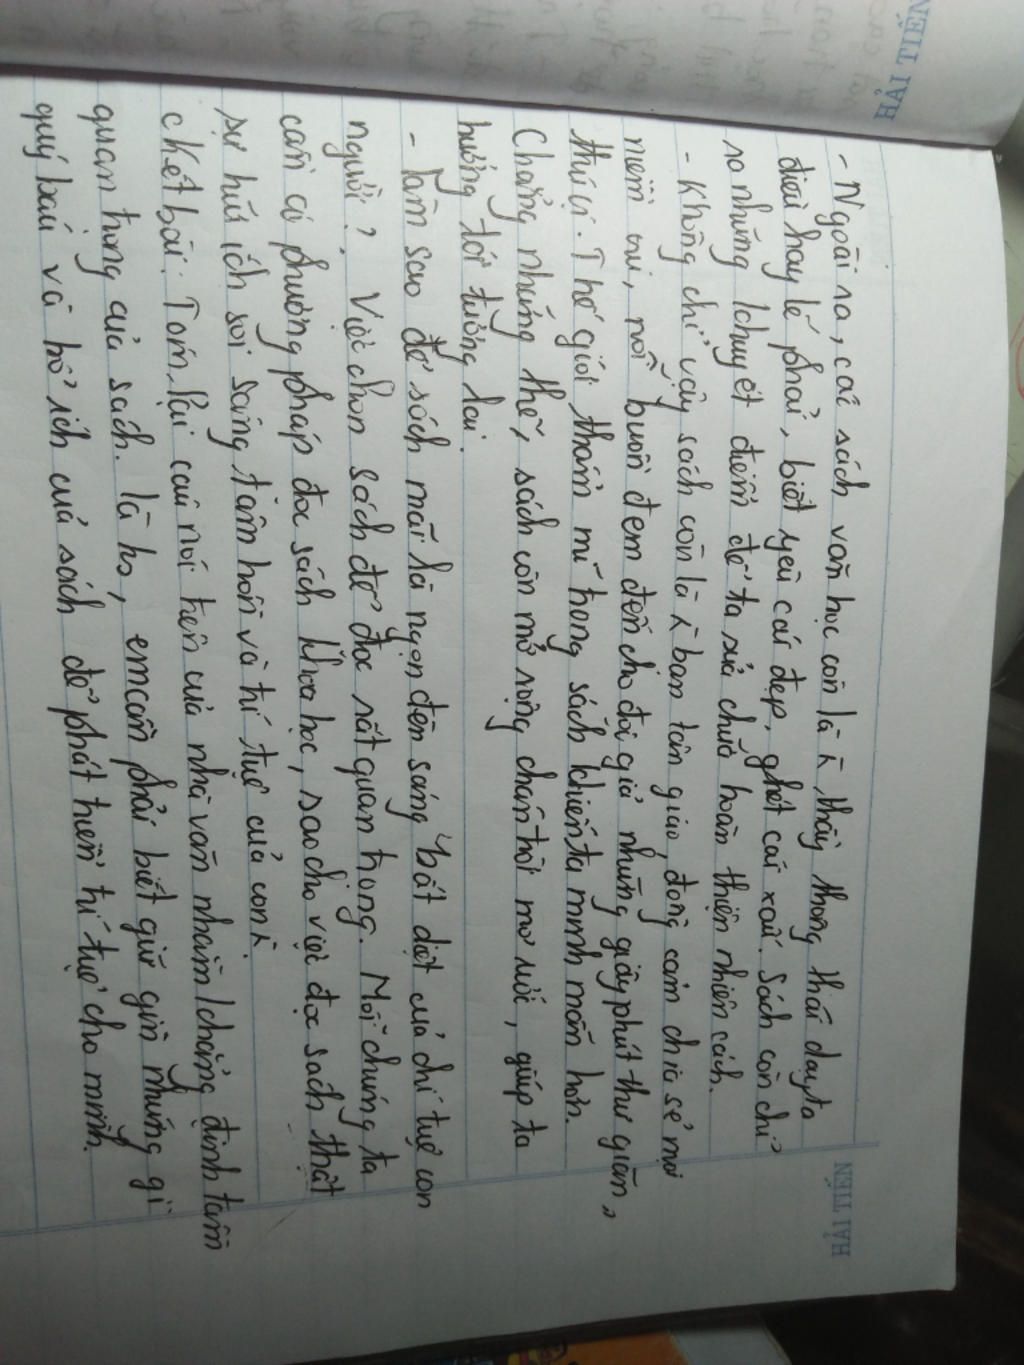 HẢI TIẾN
HẢI TIẾN
- Ngoài ra, các sách văn học còn là 1 thầy thông thái dạy ta
điều hay lẽ phải, biết yêu cái đẹp, ghét cái xấu. Sách còn chỉ
ra những khuyết điểm để ta sửa chữa hoàn thiện nhiên cách.
- Không chỉ vậy sách còn là 1 bạn tâm giao, đồng cảm chia sẻ mọi
niềm vui, nỗi buồn đem đến cho độc giả những giây phút thư giãn,
thú vị. Thế giới thẩm mĩ trong sách khiến ta minh mẫn hơn.
Chẳng những thế, sách còn mở rộng chân trời mơ ước, giúp ta
hướng tới tương lai.
- Làm sao để sách mãi là ngọn đèn sáng bất diệt của chí tuệ con
người?. Việc chọn sách để đọc rất quan trọng. Mỗi chúng ta
cần có phương pháp đọc sách khoa học, sao cho việc đọc sách thật
sự hữu ích soi sáng tâm hồn và trí tuệ của con
c Kết bài: Tóm lại câu nói trên của nhà văn nhằm khẳng định tầm
quan trọng của sách. Là hs, em cần phải biết giữ gìn những gì
quý báu và bổ ích của sách để phát triển trí tuệ cho mình.